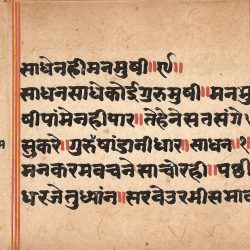 साधेनहीमनमुषी॥१४॥
साधनसाधेकोईगुरुमुषी॥मनमु
षीपांमेनहीपार॥तेहेनेसतसंगे
सुकरे॥गुरुषांडानीधार॥साधन॥१
मनकरमवचनेसाचोरही॥
धरजेतुध्यांन॥सरवेउरमीसमा